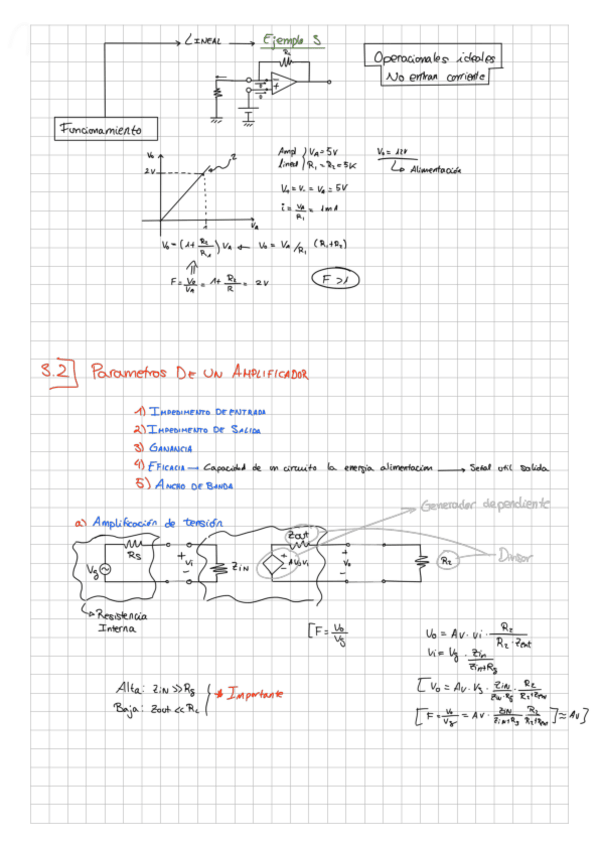 LINEAL
Ejemplo 3
Operacionales ideales
No entran corriente
Funcionamiento
Vo
2V
2
1
VA
Ampl lineal { VA = 5V
R1 = R2 = 5K
V+ = V- = VA = 5V
i = VA/R1 = 1mA
Vo = 12V
Alimentación
Vo = (1 + R2/R1) VA ← Vo = VA/R1 (R1+R2)
F = Vo/VA = 1 + R2/R = 2V
F > 1
3.2] Parametros DE UN AMPLIFICADOR
1) IMPEDIMENTO DE ENTRADA
2) IMPEDIMENTO DE SALIDA
3) GANANCIA
4) EFICACIA → Capacidad de un circuito la energia alimentacion → Señal util salida
5) ANCHO DE BANDA
Generador dependiente
a) Amplificación de tensión
Rs
Vg
+
Vi
-
ZIN
Zout
+
-
AvoVi
+
Vo
-
Divisor
Resistencia
Interna
[F = Vo/Vg
Vo = Av · Vi ·
Vi = Vg · Zin/Zin+Rg
Alta: ZIN >> Rg
Baja: Zout <<
* Importante
[Vo = Av · Vg ·
[F = Vo/Vg = Av ·
] ≈ Av]